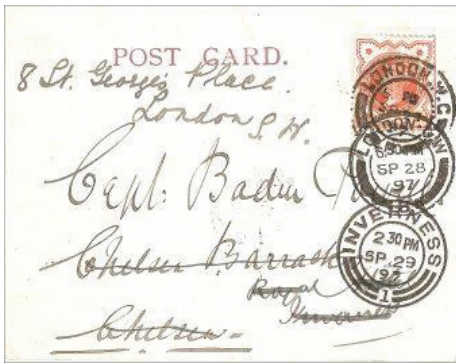 POST CARD.
8 St. George's Place
London
S.W.
Capt. Baden
Chelsea Barracks
Royal
Chelsea
LONDON. W.C
LONDON. S.W
6.30 PM
SP 28
97
INVERNESS
2 30 PM
SP. 29
97
1